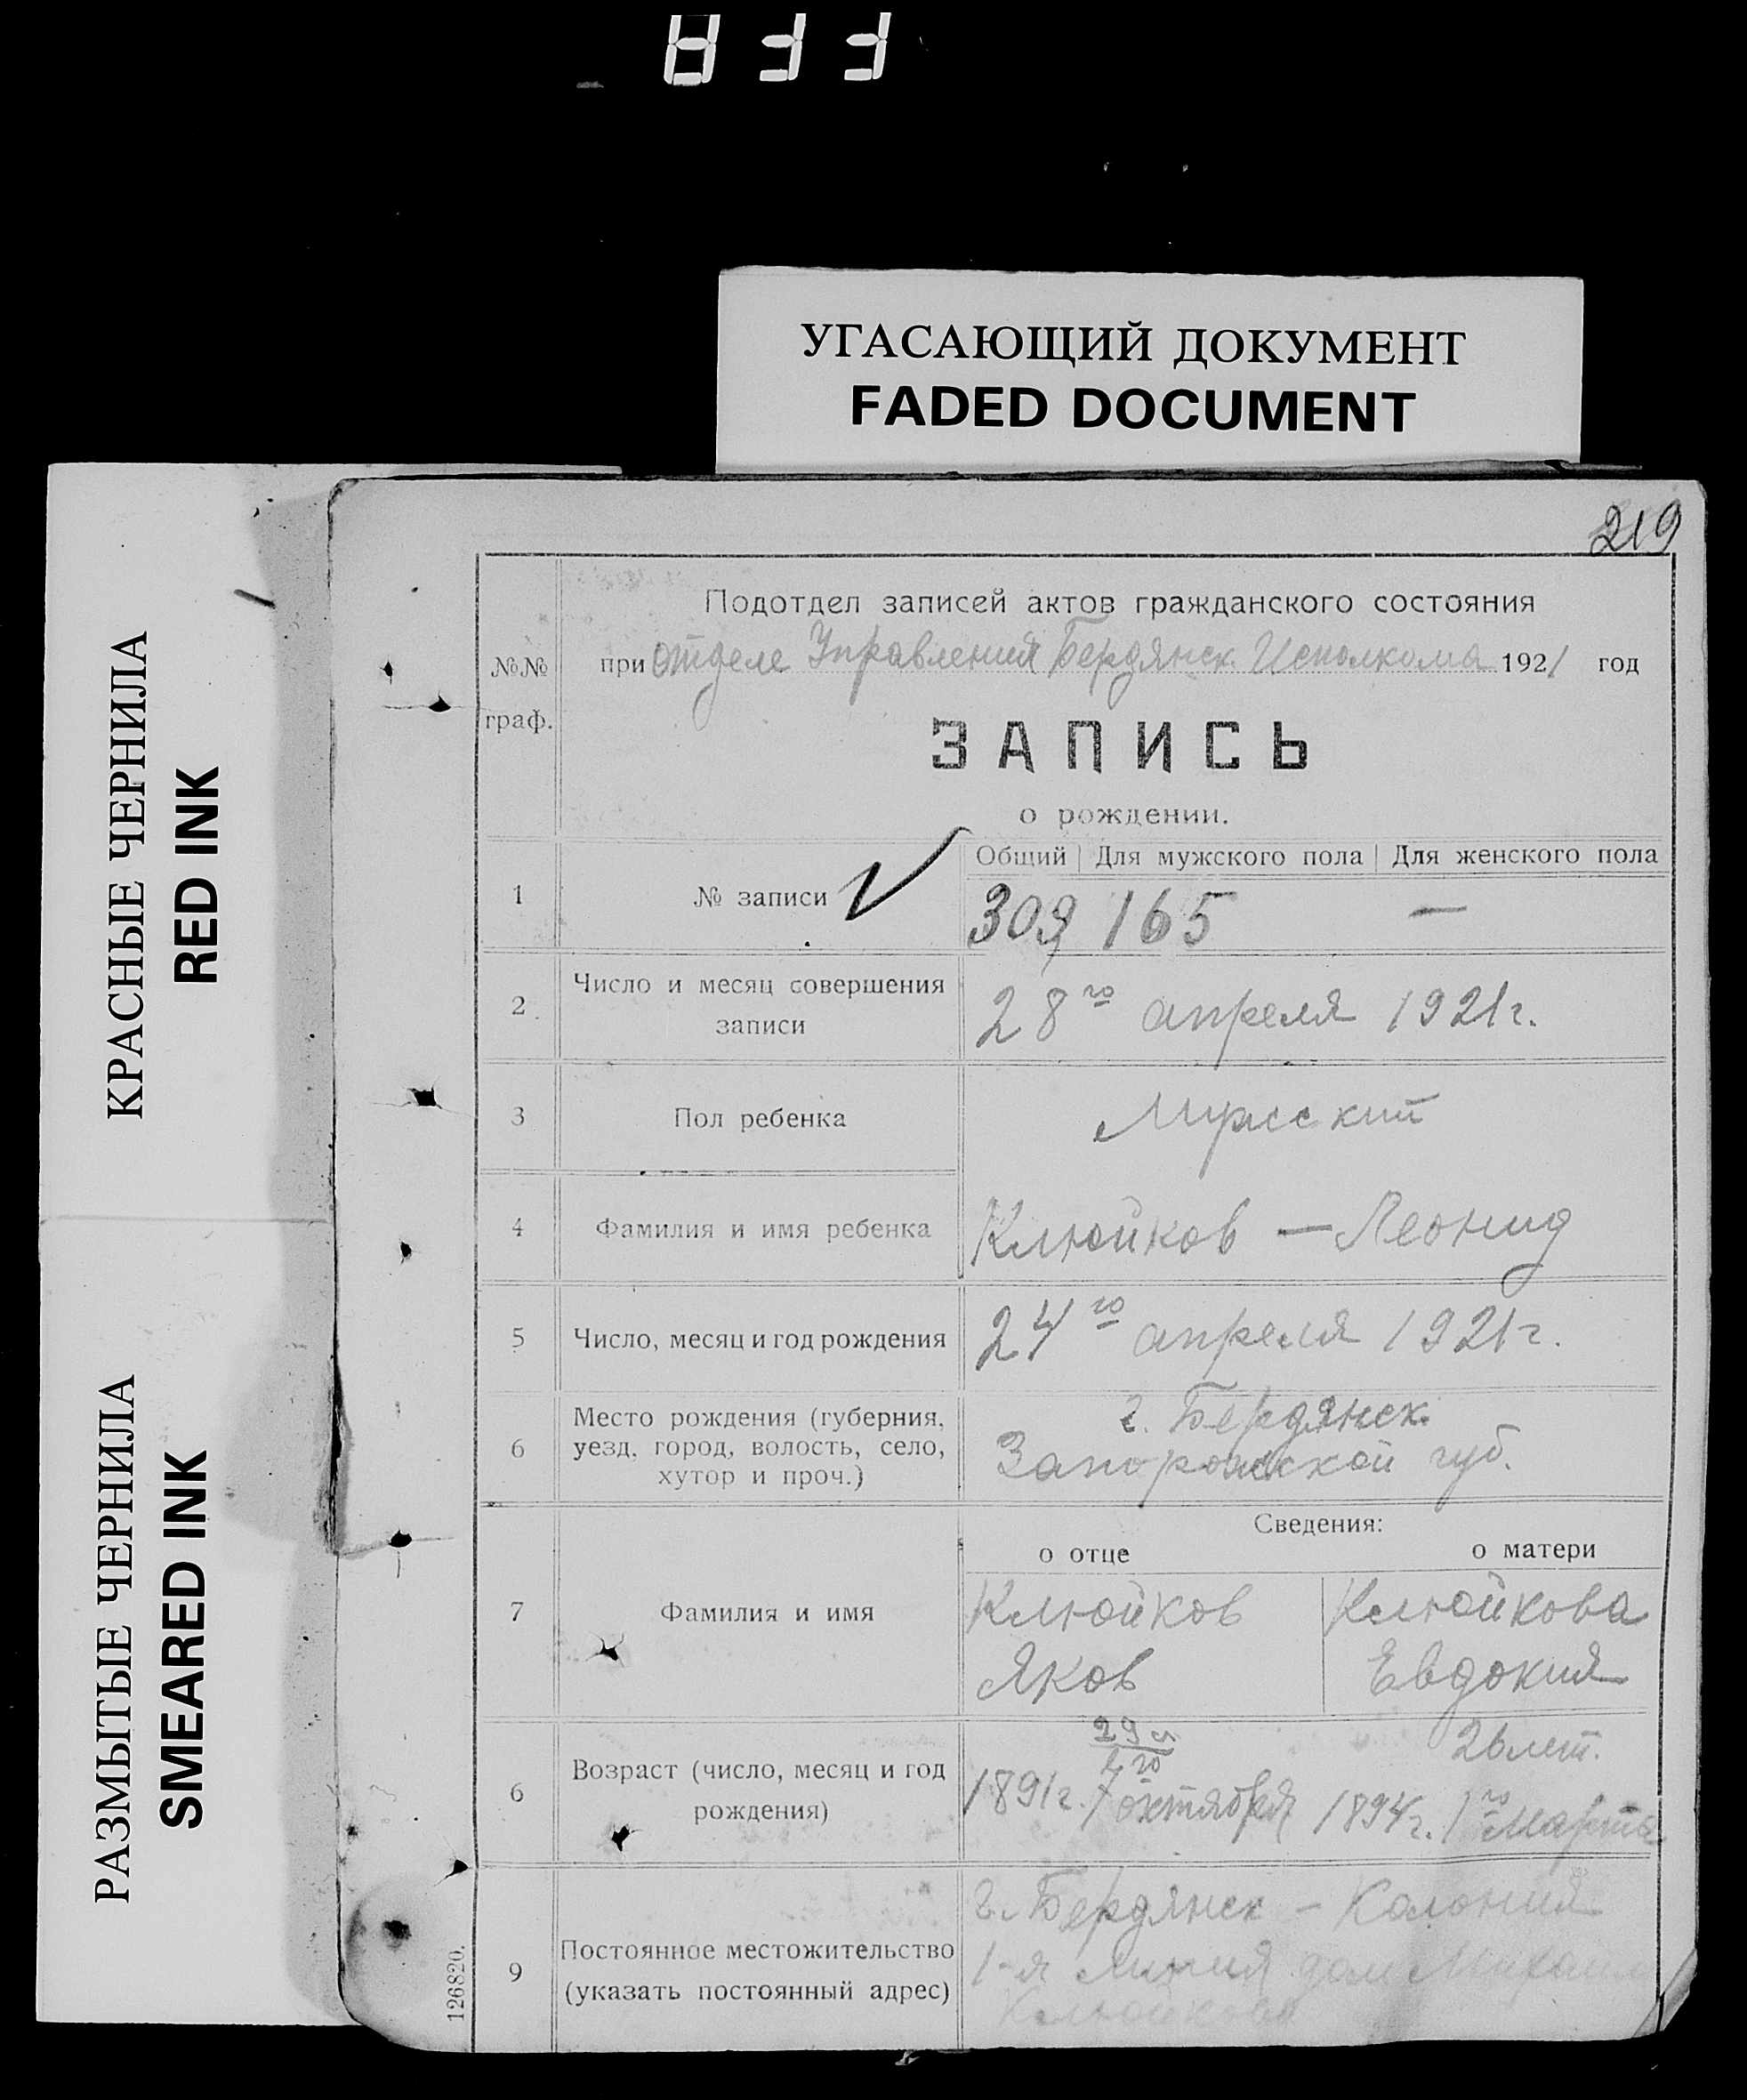 УГАСАЮЩИЙ ДОКУМЕНТ
FADED DOCUMENT
КРАСНЫЕ ЧЕРНИЛА
RED INK
РАЗМЫТЫЕ ЧЕРНИЛА
SMEARED INK
219
Подотдел записей актов гражданского состояния
№№ граф.
при отделе Управления Бердянск. Исполкома 1921 год
ЗАПИСЬ
о рождении.
Общий | Для мужского пола | Для женского пола
1 № записи 309 165 —
2 Число и месяц совершения
записи
28го апреля 1921 г.
3 Пол ребенка Мужский
4 Фамилия и имя ребенка Клюйков — Леонид
5 Число, месяц и год рождения 24го апреля 1921 г.
6 Место рождения (губерния,
уезд, город, волость, село,
хутор и проч.)
г. Бердянск
Запорожской губ.
Сведения:
о отце о матери
7 Фамилия и имя
Клюйков Клюйкова
Яков Евдокия
6 Возраст (число, месяц и год
рождения)
29 л 26 лет.
1891 г. октября 1894 г. 1го Марта
9 Постоянное местожительство
(указать постоянный адрес)
г. Бердянск – Колония
1-я линия дом Михаила
Клюйкова
126820.